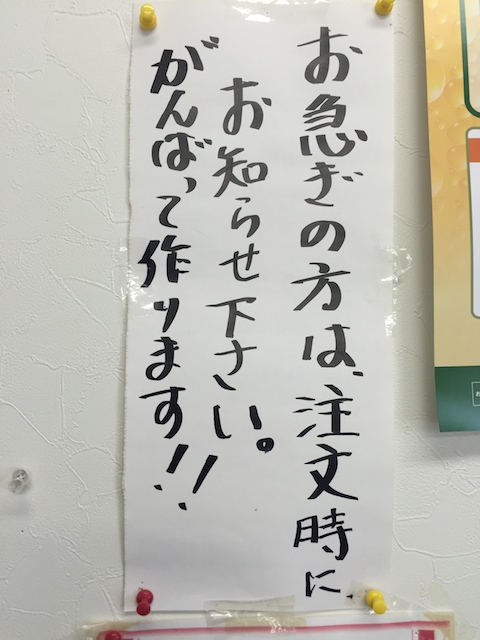 お急ぎの方は、注文時に
お知らせ下さい。
がんばって作ります!!